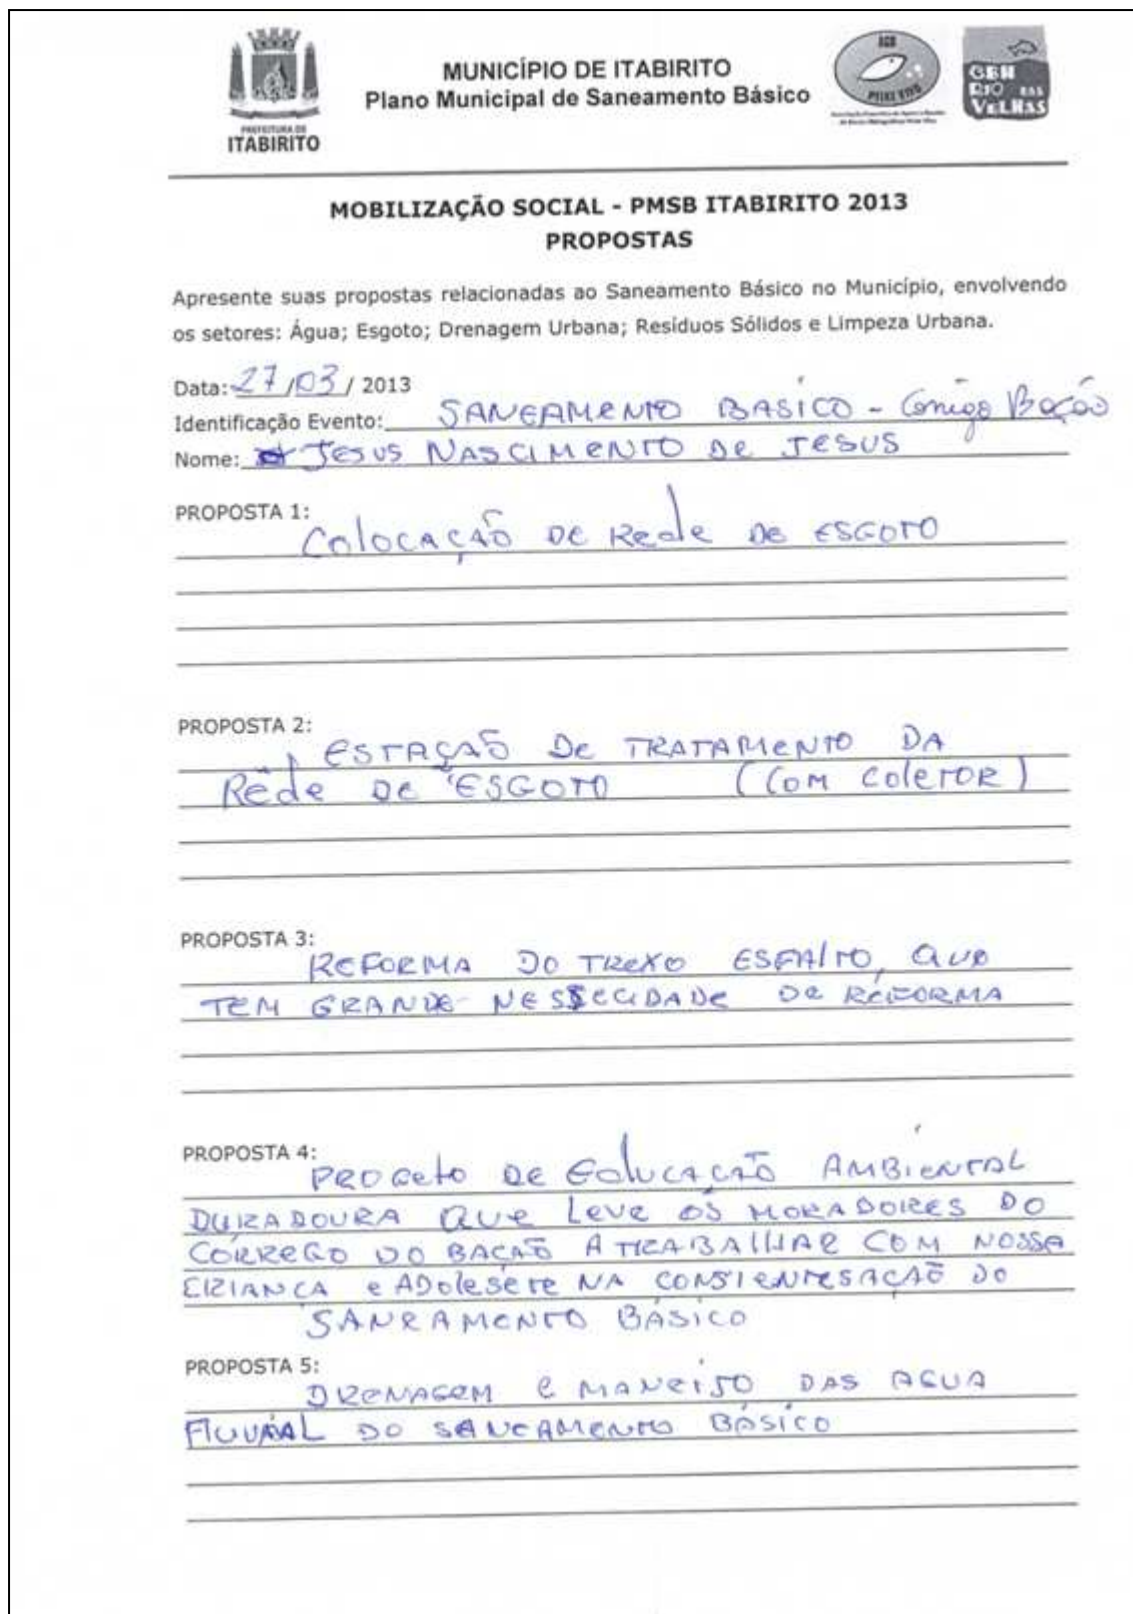 PREFEITURA DE
ITABIRITO
MUNICÍPIO DE ITABIRITO
Plano Municipal de Saneamento Básico
AGB
PEIXE VIVO
CBH
RIO DAS
VELHAS
MOBILIZAÇÃO SOCIAL - PMSB ITABIRITO 2013
PROPOSTAS
Apresente suas propostas relacionadas ao Saneamento Básico no Município, envolvendo
os setores: Água; Esgoto; Drenagem Urbana; Resíduos Sólidos e Limpeza Urbana.
Data: 27/03/ 2013
Identificação Evento: SANEAMENTO BASICO - Bação
Nome: JESUS NASCIMENTO DE JESUS
PROPOSTA 1:
COlOCAÇÃO DE Rede DE ESGOTO
PROPOSTA 2:
ESTAÇÃO De TRATAMENTO DA
Rede DE ESGOTO (COM COLETOR)
PROPOSTA 3:
REFORMA DO TREXO ESFAlTO, QUE
TEM GRANDE NESSECIDADE DE REFORMA
PROPOSTA 4:
PROGeto DE EdUCAÇÃO AMBIENTAL
DURADOURA QUE Leve OS MORADORES DO
CORREGO DO BAÇÃO A TRABAlHAR COM NOSSA
CRIANÇA e ADOleSETE NA CONSIENTESAÇÃO DO
SANEAMENTO BÁSICO
PROPOSTA 5:
DRENAGEM e MANEIJO DAS AGUA
FlUVIAL DO SANEAMENTO BÁSICO